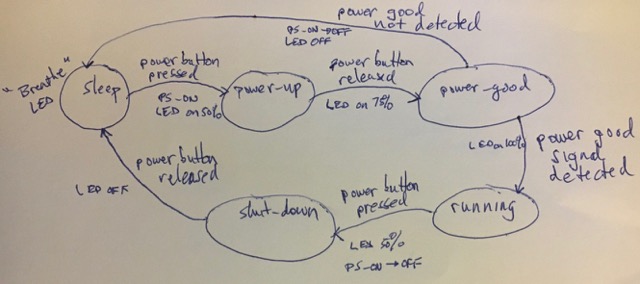 power good
not detected
PS-ON→OFF
LED OFF
"Breathe"
LED
sleep
power button
pressed
PS-ON
LED on 50%
power-up
power button
released
LED on 75%
power-good
LED on 100%
power good
signal
detected
running
power button
pressed
LED 50%
PS-ON→OFF
shut-down
power button
released
LED OFF